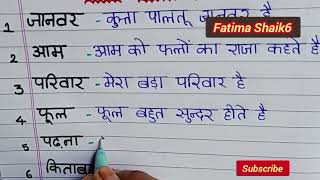 Fatima Shaik6
1 जानवर - कुत्ता पालतू जानवर है
2 आम - आम को फलों का राजा कहते हैं
3 परिवार - मेरा बड़ा परिवार है
4 फूल - फूल बहुत सुन्दर होते है
5 पढ़ना -
6 किताब
Subscribe